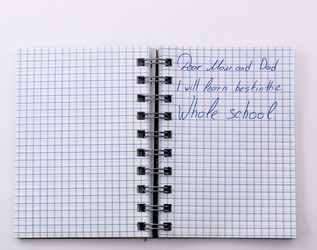 Dear Mom and Dad
I will learn best in the
Whole school